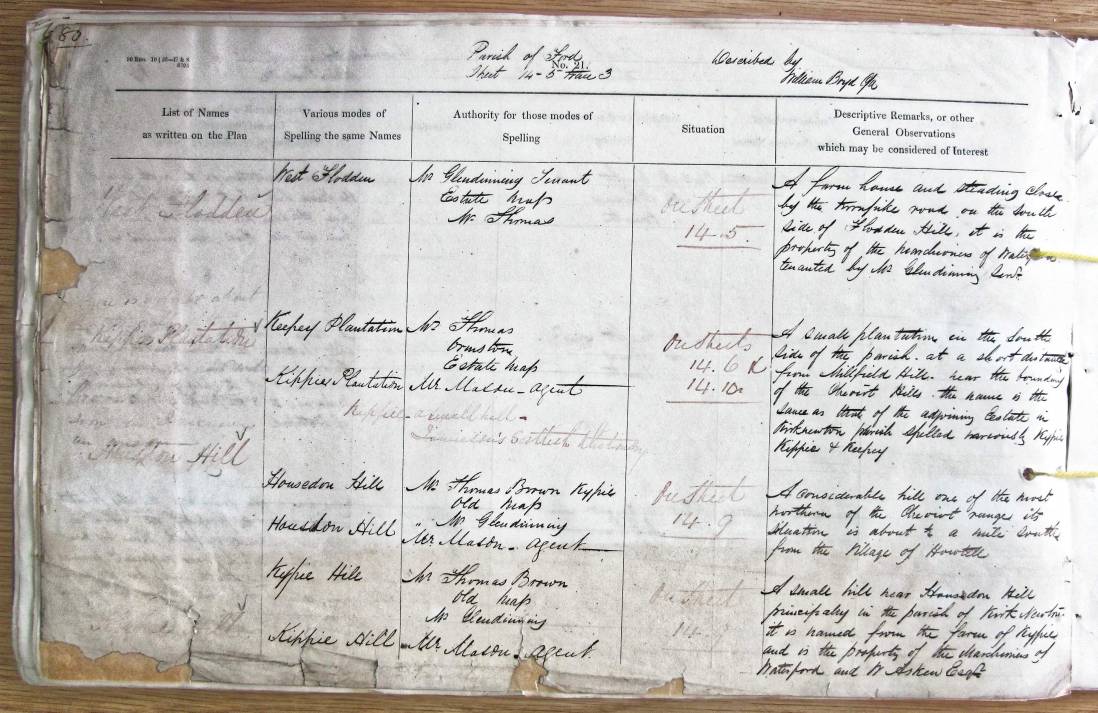 80.
Parish of Ford
No. 21.
Sheet 14-5 Trace 3
Described by
William Boyd
List of Names
as written on the Plan
Various modes of
Spelling the same Names
Authority for those modes of
Spelling
Situation
Descriptive Remarks, or other
General Observations
which may be considered of Interest
West Flodden
West Flodden
Mr Glendinning Tenant
Estate Map
Mr Thomas
On Sheet
14-5.
A farm house and steading close
by the turnpike road on the South
side of Flodden Hill, it is the
property of the Marchioness of
tenanted by Mr Glendinning Senr.
Plantation
Keepey Plantation
Kippie Plantation
Mr Thomas
Ormston
Estate Map
Mr Mason - Agent
Kippie - a small hill -
On Sheets
14.6 &
14.10.
A small plantation in the South
side of the parish. at a short distance
from Millfield Hill. near the boundary
of the Cheviot Hills. the name is the
same as that of the adjoining Estate in
Kirknewton parish spelled variously Kypie
Kippie & Keepey
Hill
Housedon Hill
Housdon Hill
Mr Thomas Brown Kypie
Old Map
" Mr Glendinning
Mr Mason - Agent
On Sheet
14.9
A considerable hill one of the most
northern of the Cheviot range its
situation is about ½ a mile south
from the Village of Howtell
Kypie Hill
Kippie Hill
Mr Thomas Brown
Old Map
Mr Glendinning
Mr Mason - Agent.
On Sheet
14
A small hill near Housedon Hill
principaly in the parish of Kirk Newton
it is named from the farm of Kypie
and is the property of the Marchioness of
Waterford and W Askew Esqr.